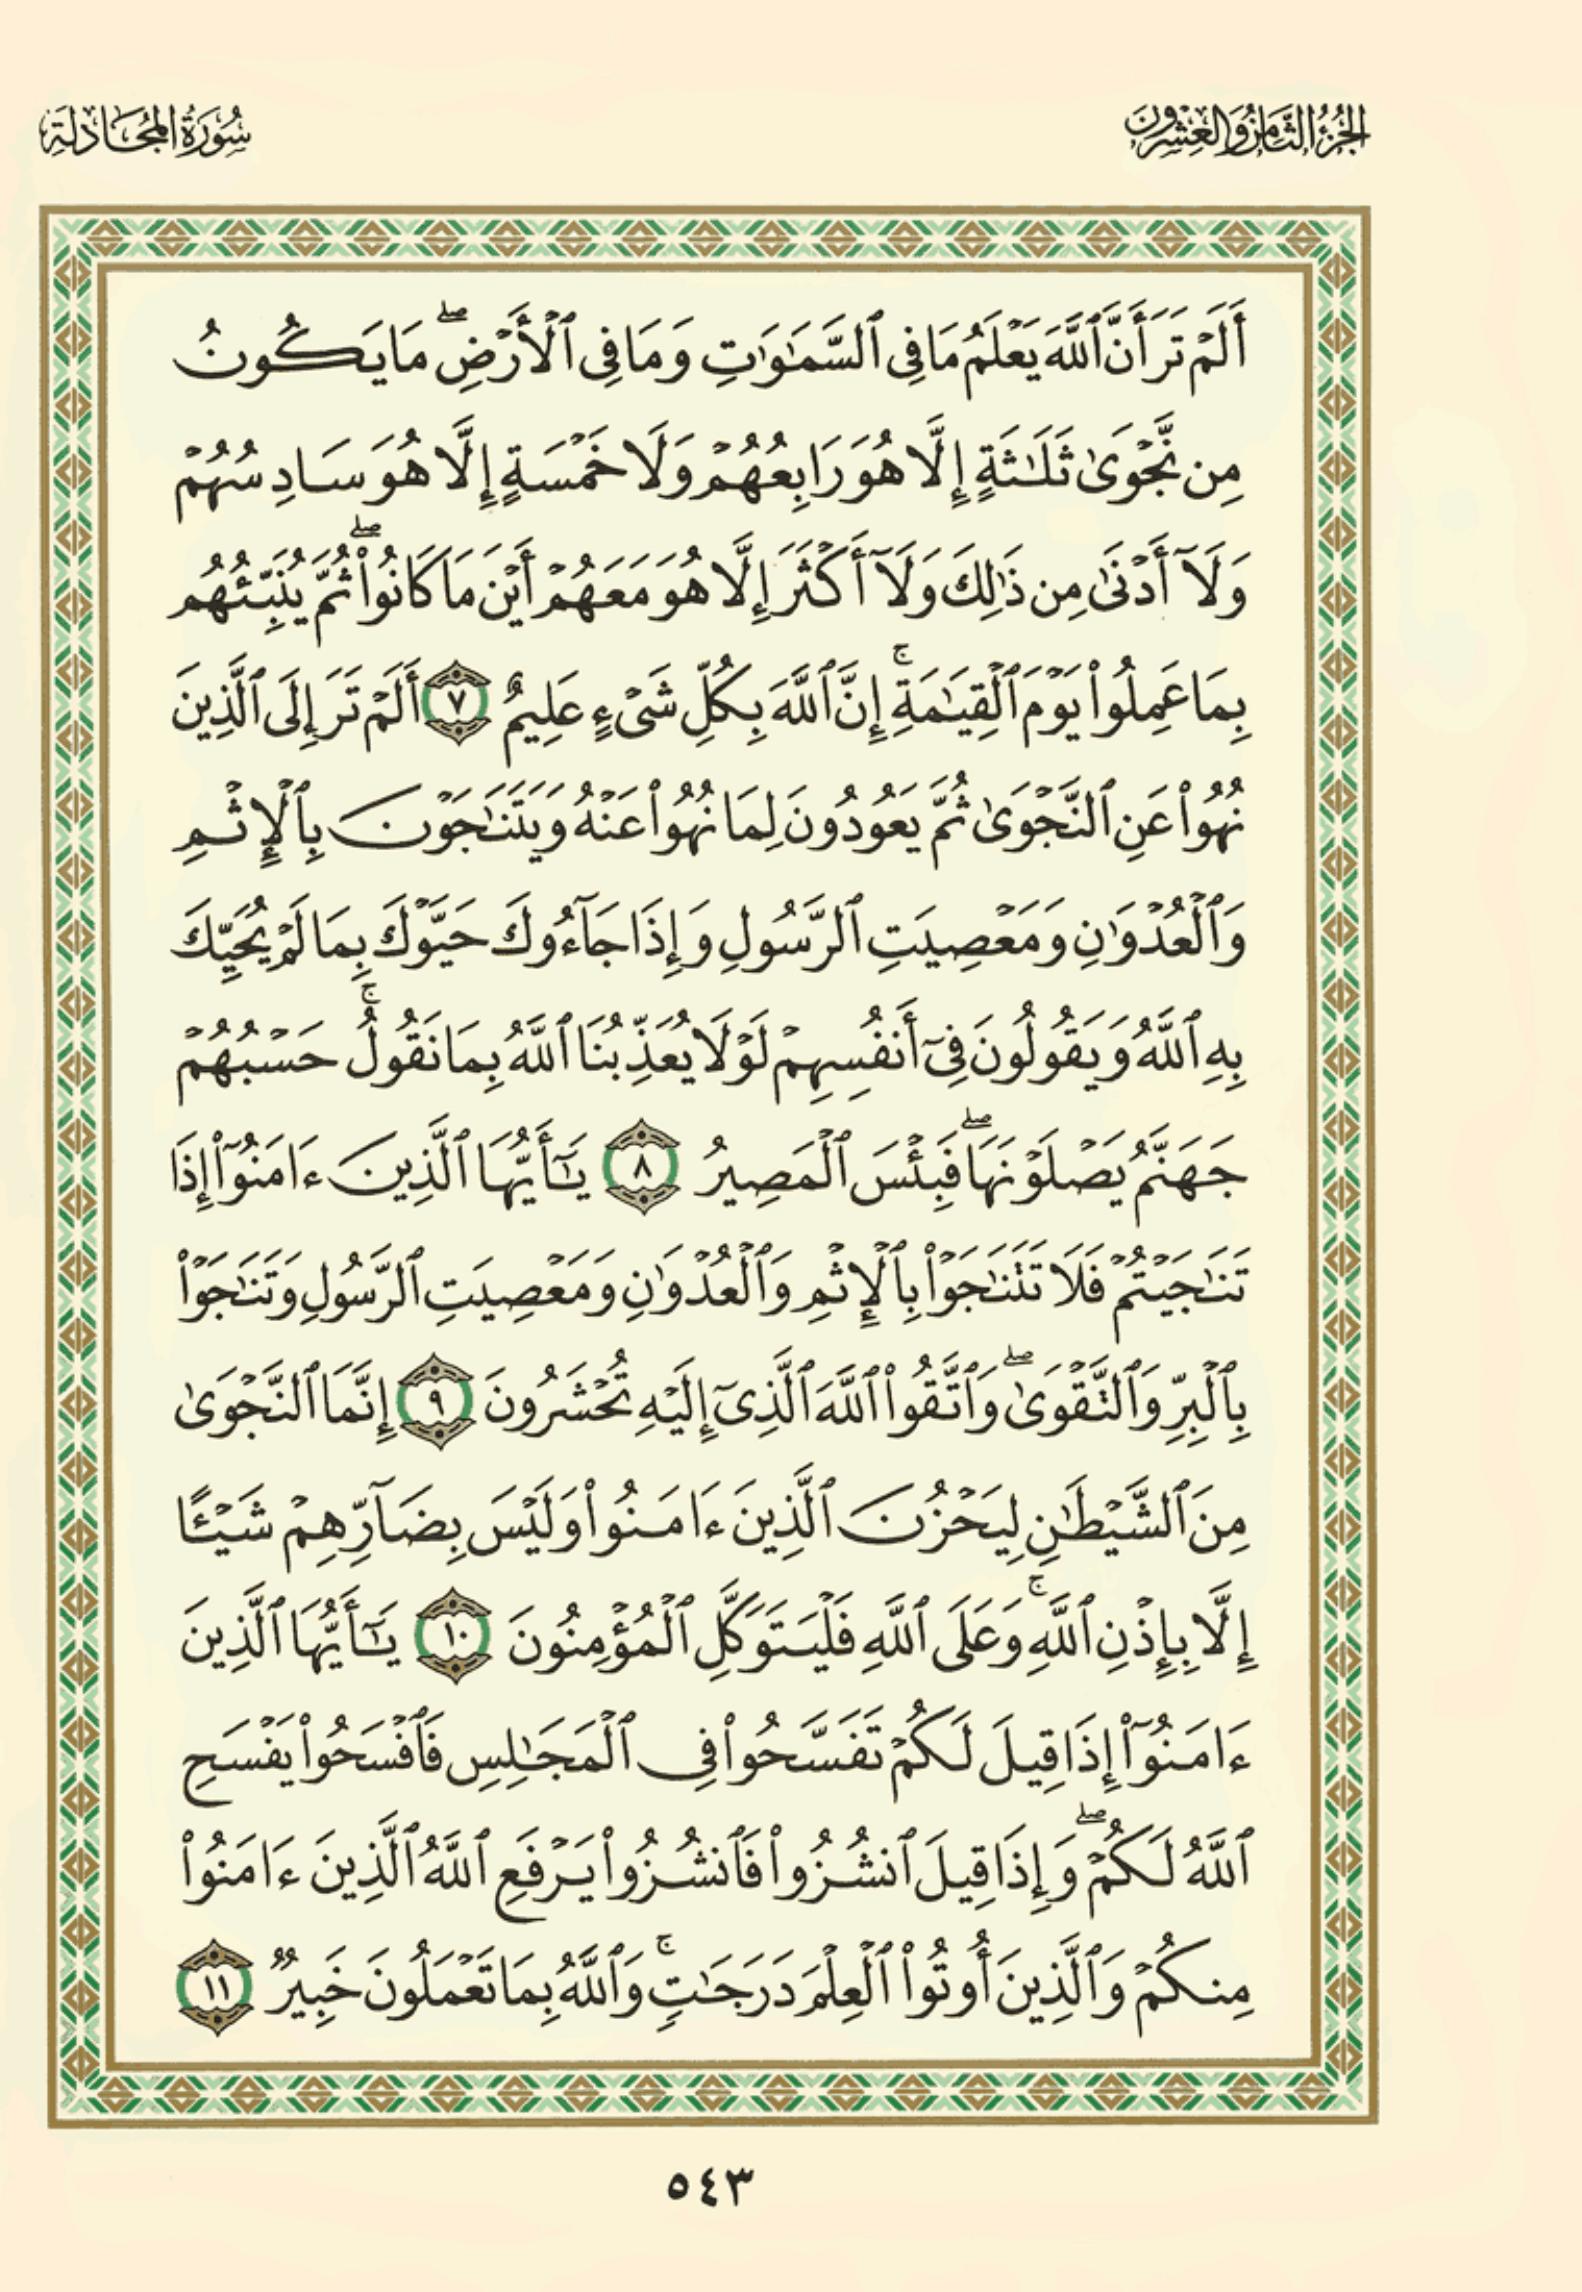 الجزء الثامن والعشرون
سورة المجادلة
أَلَمْ تَرَ أَنَّ ٱللَّهَ يَعْلَمُ مَا فِى ٱلسَّمَٰوَٰتِ وَمَا فِى ٱلْأَرْضِۖ مَا يَكُونُ
مِن نَّجْوَىٰ ثَلَٰثَةٍ إِلَّا هُوَ رَابِعُهُمْ وَلَا خَمْسَةٍ إِلَّا هُوَ سَادِسُهُمْ
وَلَآ أَدْنَىٰ مِن ذَٰلِكَ وَلَآ أَكْثَرَ إِلَّا هُوَ مَعَهُمْ أَيْنَ مَا كَانُوا۟ۖ ثُمَّ يُنَبِّئُهُم
بِمَا عَمِلُوا۟ يَوْمَ ٱلْقِيَٰمَةِۚ إِنَّ ٱللَّهَ بِكُلِّ شَىْءٍ عَلِيمٌ ٧ أَلَمْ تَرَ إِلَى ٱلَّذِينَ
نُهُوا۟ عَنِ ٱلنَّجْوَىٰ ثُمَّ يَعُودُونَ لِمَا نُهُوا۟ عَنْهُ وَيَتَنَٰجَوْنَ بِٱلْإِثْمِ
وَٱلْعُدْوَٰنِ وَمَعْصِيَتِ ٱلرَّسُولِ وَإِذَا جَآءُوكَ حَيَّوْكَ بِمَا لَمْ يُحَيِّكَ
بِهِ ٱللَّهُ وَيَقُولُونَ فِىٓ أَنفُسِهِمْ لَوْلَا يُعَذِّبُنَا ٱللَّهُ بِمَا نَقُولُۚ حَسْبُهُمْ
جَهَنَّمُ يَصْلَوْنَهَاۖ فَبِئْسَ ٱلْمَصِيرُ ٨ يَٰٓأَيُّهَا ٱلَّذِينَ ءَامَنُوٓا۟ إِذَا
تَنَٰجَيْتُمْ فَلَا تَتَنَٰجَوْا۟ بِٱلْإِثْمِ وَٱلْعُدْوَٰنِ وَمَعْصِيَتِ ٱلرَّسُولِ وَتَنَٰجَوْا۟
بِٱلْبِرِّ وَٱلتَّقْوَىٰۖ وَٱتَّقُوا۟ ٱللَّهَ ٱلَّذِىٓ إِلَيْهِ تُحْشَرُونَ ٩ إِنَّمَا ٱلنَّجْوَىٰ
مِنَ ٱلشَّيْطَٰنِ لِيَحْزُنَ ٱلَّذِينَ ءَامَنُوا۟ وَلَيْسَ بِضَآرِّهِمْ شَيْـًٔا
إِلَّا بِإِذْنِ ٱللَّهِۚ وَعَلَى ٱللَّهِ فَلْيَتَوَكَّلِ ٱلْمُؤْمِنُونَ ١٠ يَٰٓأَيُّهَا ٱلَّذِينَ
ءَامَنُوٓا۟ إِذَا قِيلَ لَكُمْ تَفَسَّحُوا۟ فِى ٱلْمَجَٰلِسِ فَٱفْسَحُوا۟ يَفْسَحِ
ٱللَّهُ لَكُمْۖ وَإِذَا قِيلَ ٱنشُزُوا۟ فَٱنشُزُوا۟ يَرْفَعِ ٱللَّهُ ٱلَّذِينَ ءَامَنُوا۟
مِنكُمْ وَٱلَّذِينَ أُوتُوا۟ ٱلْعِلْمَ دَرَجَٰتٍۚ وَٱللَّهُ بِمَا تَعْمَلُونَ خَبِيرٌ ١١
٥٤٣